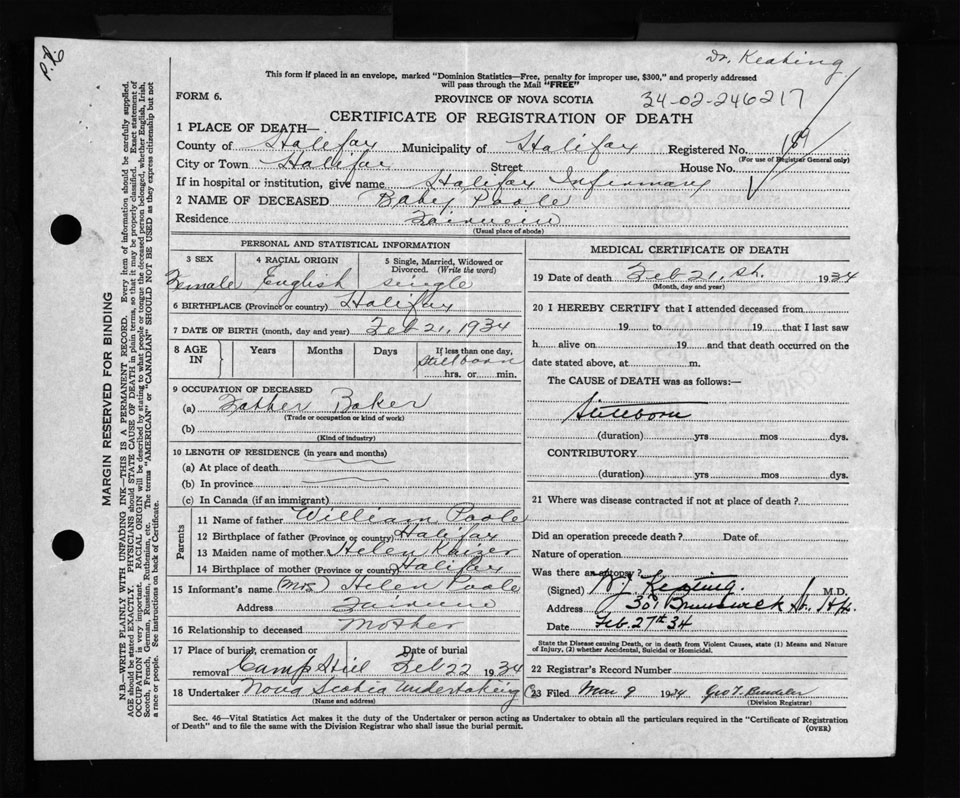 Dr. Keating
P.R.
This form if placed in an envelope, marked "Dominion Statistics—Free, penalty for improper use, $300," and properly addressed
will pass through the Mail "FREE"
FORM 6.
PROVINCE OF NOVA SCOTIA
34-02-246217
CERTIFICATE OF REGISTRATION OF DEATH
1 PLACE OF DEATH—
County of Halifax Municipality of Halifax Registered No. 189
(For use of Registrar General only)
City or Town Halifax Street House No.
If in hospital or institution, give name Halifax Infirmary
2 NAME OF DECEASED Baby Poole
Residence Fairview
(Usual place of abode)
PERSONAL AND STATISTICAL INFORMATION
3 SEX 4 RACIAL ORIGIN 5 Single, Married, Widowed or
Divorced. (Write the word)
Female English single
6 BIRTHPLACE (Province or country) Halifax
7 DATE OF BIRTH (month, day and year) Feb 21, 1934
8 AGE IN Years Months Days If less than one day,
Stillborn
hrs. or min.
9 OCCUPATION OF DECEASED
(a) Father Baker
(Trade or occupation or kind of work)
(b)
(Kind of industry)
10 LENGTH OF RESIDENCE (in years and months)
(a) At place of death
(b) In province
(c) In Canada (if an immigrant)
Parents
11 Name of father William Poole
12 Birthplace of father (Province or country) Halifax
13 Maiden name of mother Helen Kaizer
14 Birthplace of mother (Province or country) Halifax
15 Informant's name (Mrs) Helen Poole
Address Fairview
16 Relationship to deceased Mother
17 Place of burial, cremation or Date of burial
removal Camp Hill Feb 22 1934
18 Undertaker Nova Scotia Undertaking Co
(Name and address)
MEDICAL CERTIFICATE OF DEATH
19 Date of death Feb 21, st. 1934
(Month, day and year)
20 I HEREBY CERTIFY that I attended deceased from
19 to 19 that I last saw
h alive on 19 and that death occurred on the
date stated above, at m.
The CAUSE of DEATH was as follows:—
Stillborn
(duration) yrs mos dys.
CONTRIBUTORY
(duration) yrs mos dys.
21 Where was disease contracted if not at place of death?
Did an operation precede death? Date of
Nature of operation
Was there an autopsy?
(Signed) Keating. M.D.
Address 307 Brunswick St. Hfx.
Date Feb. 27th 34
State the Disease causing Death, or in death from Violent Causes, state (1) Means and Nature
of Injury, (2) whether Accidental, Suicidal or Homicidal.
22 Registrar's Record Number
23 Filed Mar 9 1934 Geo T.
(Division Registrar)
Sec. 46—Vital Statistics Act makes it the duty of the Undertaker or person acting as Undertaker to obtain all the particulars required in the "Certificate of Registration
of Death" and to file the same with the Division Registrar who shall issue the burial permit.
(OVER)
MARGIN RESERVED FOR BINDING
N.B.—WRITE PLAINLY WITH UNFADING INK—THIS IS A PERMANENT RECORD. Every item of information should be carefully supplied.
AGE should be stated EXACTLY. PHYSICIANS should STATE CAUSE OF DEATH in plain terms, so that it may be properly classified. Exact statement of
OCCUPATION is very important. RACIAL ORIGIN will be described by stating to what people or tongue the deceased person belonged, whether English, Irish,
Scotch, French, German, Russian, Ruthenian, etc. The terms "AMERICAN" or "CANADIAN" SHOULD NOT BE USED as they express citizenship but not
a race or people. See instructions on back of Certificate.